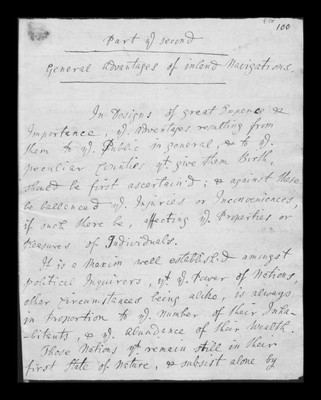 100
Part yᵉ second
General Advantages of inland Navigations.
In Designs of great Expence &
Importance, yᵉ Advantages resulting from
them to yᵉ Public in general, & to yᵉ
peculiar Counties yᵗ give them Birth,
should be first ascertain'd; & against these
be ballenced yᵉ Injuries or Inconveniences,
if such there be, affecting yᵉ Properties or
Pleasures of Individuals.
It is a Maxim well established amongst
political Inquirers, yᵗ yᵉ Power of Nations,
other circumstances being alike, is always
in proportion to yᵉ Number of their Inha-
bitants, & yᵉ Abundance of their Wealth.
Those Nations yᵗ remain still in their
first State of Nature, & subsist alone by